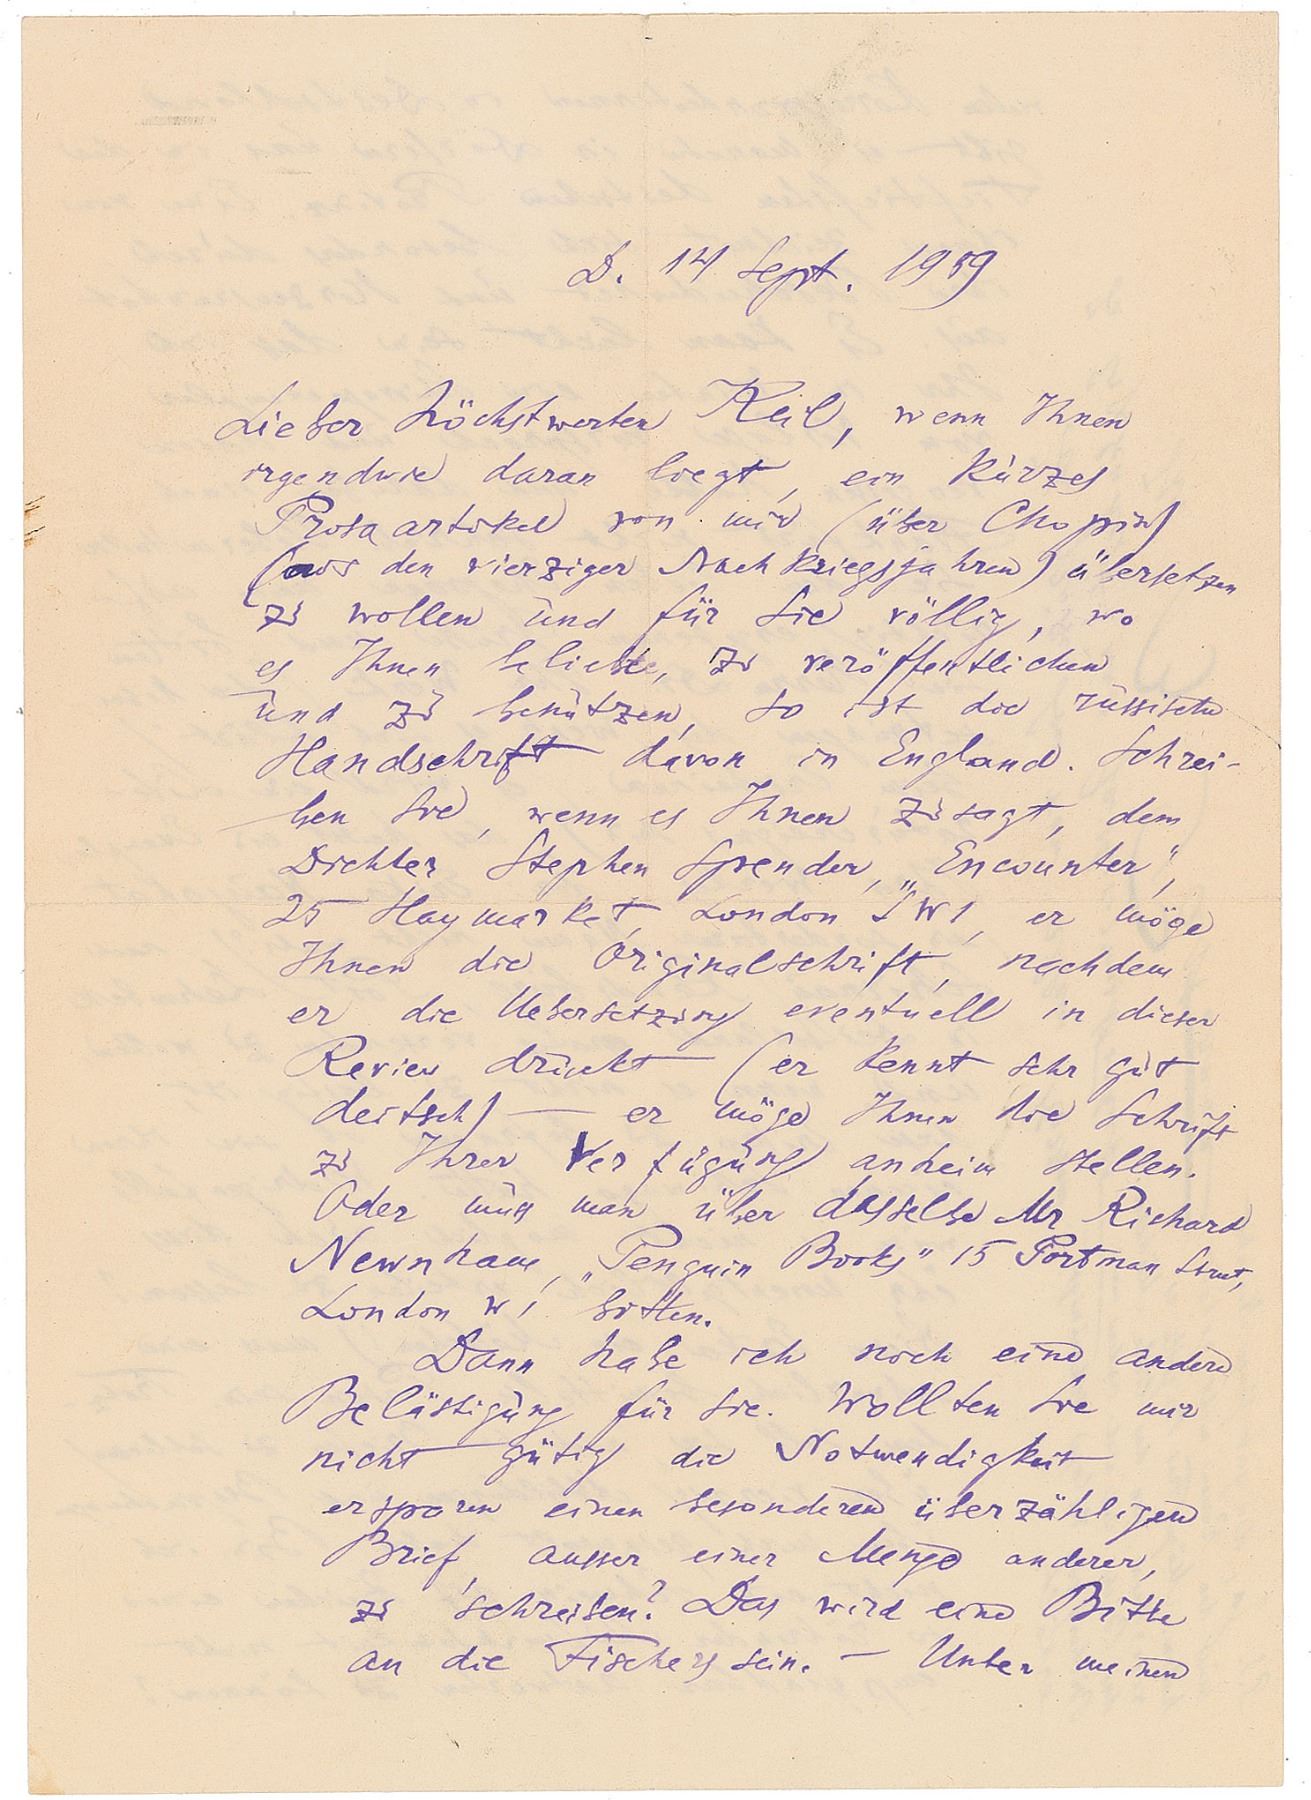 D. 14 Sept. 1959
Lieber höchstwerter Keil, wenn Ihnen
irgendwie daran liegt, ein kurzes
Prosaartikel von mir (über Chopin)
(aus den vierziger Nachkriegsjahren) übersetzen
zu wollen und für Sie völlig, wo
es Ihnen beliebte, zu veröffentlichen
und zu benützen, so ist die russische
Handschrift davon in England. Schrei-
ben Sie, wenn es Ihnen zusagt, dem
Dichter Stephen Spender, „Encounter“,
25 Haymarket, London SW1, er möge
Ihnen die Originalschrift, nachdem
er die Uebersetzung eventuell in dieser
Review druckt — (er kennt sehr gut
deutsch) — er möge Ihnen die Schrift
zu Ihrer Verfügung anheim stellen.
Oder muss man über dasselbe Mr Richard
Newnham, „Penguin Books“ 15 Portman Street,
London W1 bitten.
Dann habe ich noch eine andere
Belästigung für Sie. Wollten Sie mir
nicht gütig die Notwendigkeit
ersparen einen besonderen überzähligen
Brief, ausser einer Menge anderer,
zu schreiben? Das wird eine Bitte
an die Fischers sein. — Unter meinen